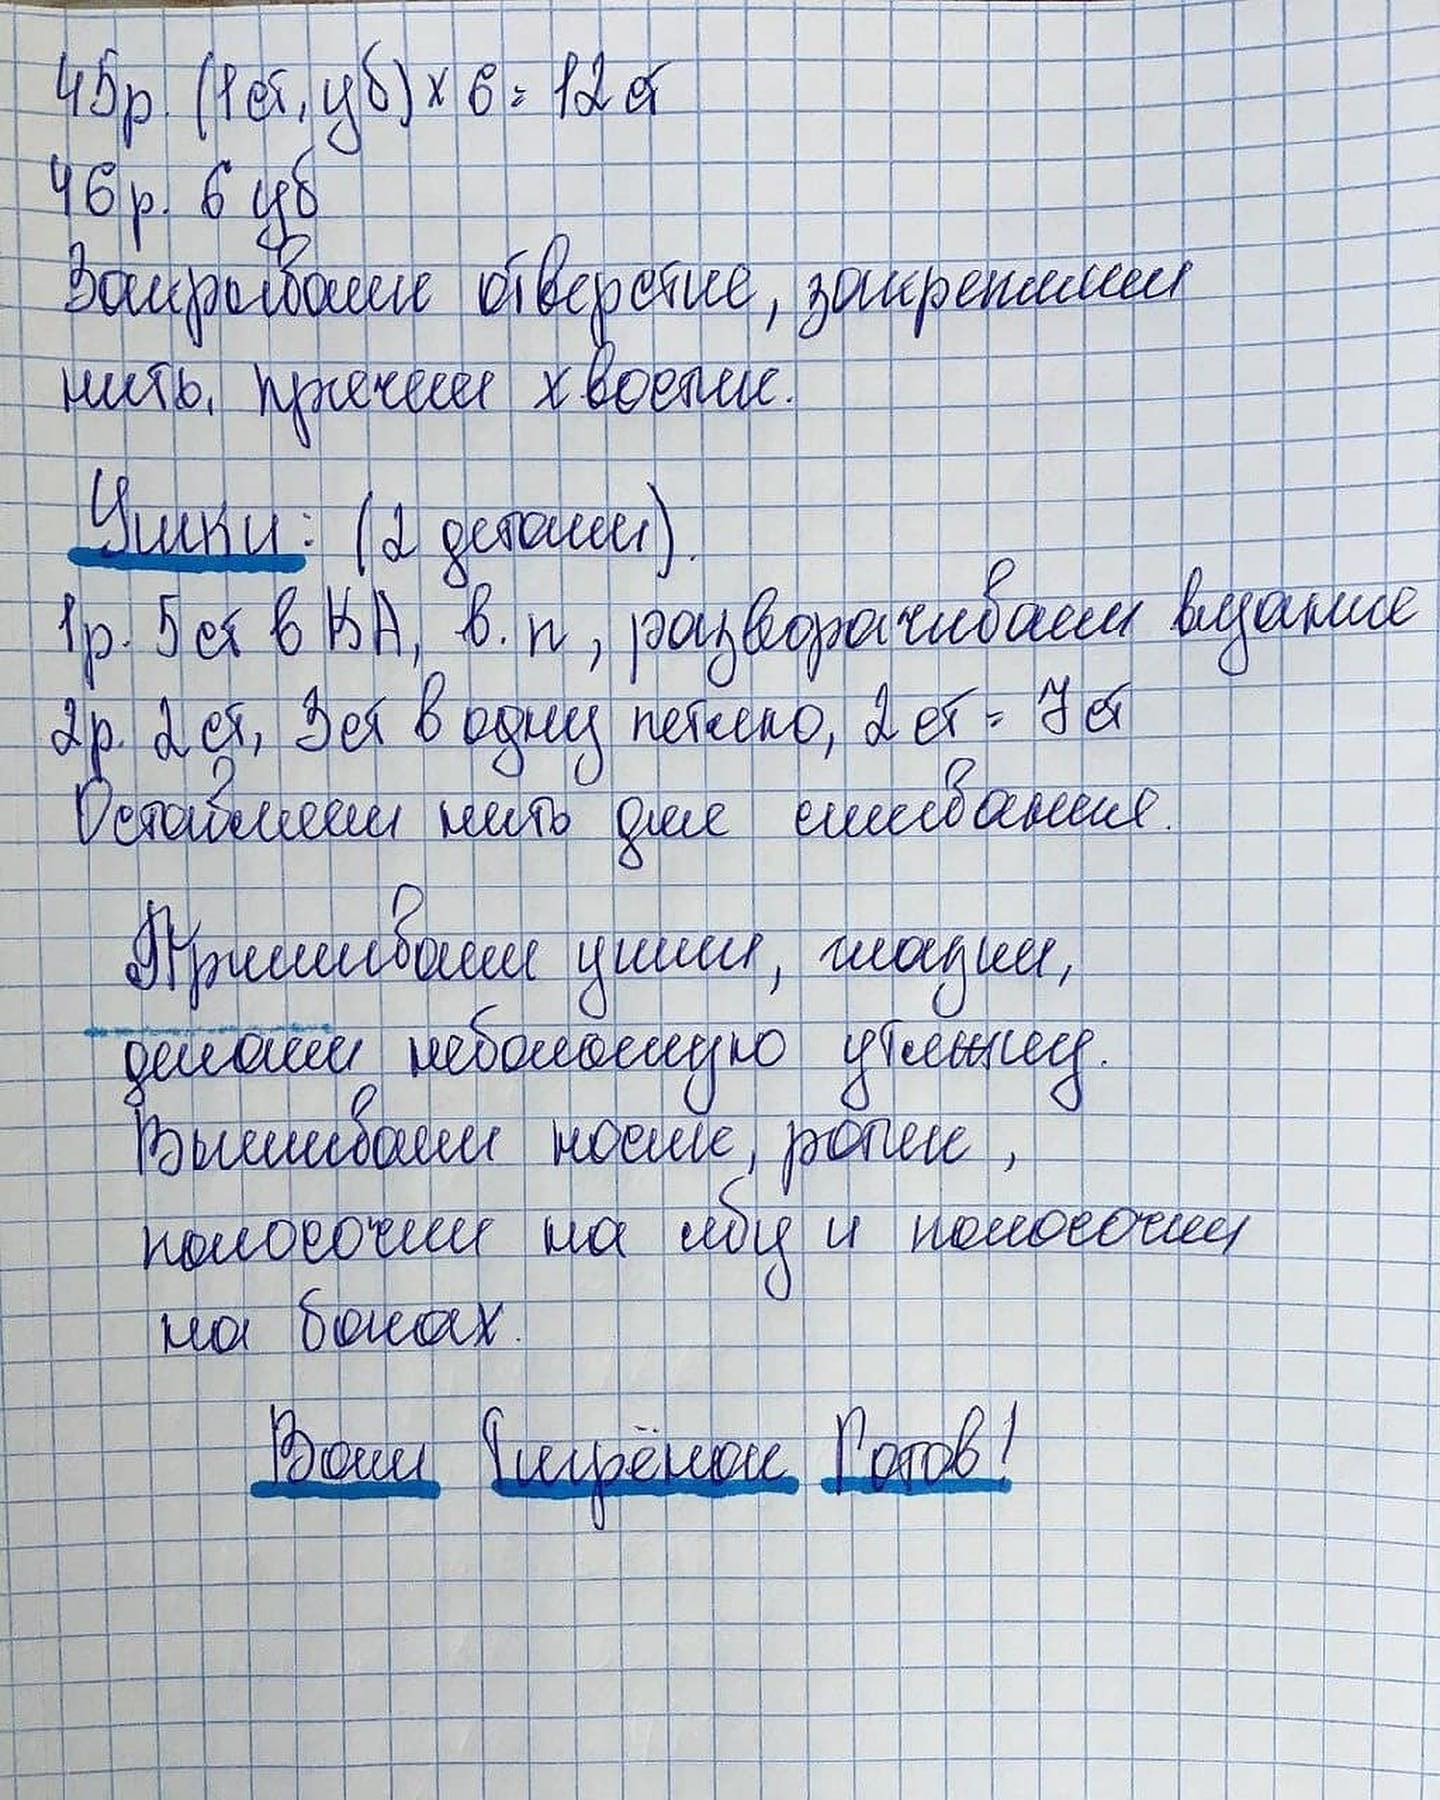 45р. (1ст, уб) х 6 = 12 ст
46р. 6 уб
Закрываем отверстие, закрепляем
нить, прячем хвостик.
Ушки: (2 детали).
1р. 5 ст в КА, в.п, разворачиваем вязание
2р. 2 ст, 3ст в одну петлю, 2 ст = 7 ст
Оставляем нить для сшивания.
Пришиваем ушки, глазки,
делаем небольшую утяжку.
Вышиваем носик, ротик,
полосочки на лбу и полосочки
на боках.
Ваш Тигрёнок Готов!